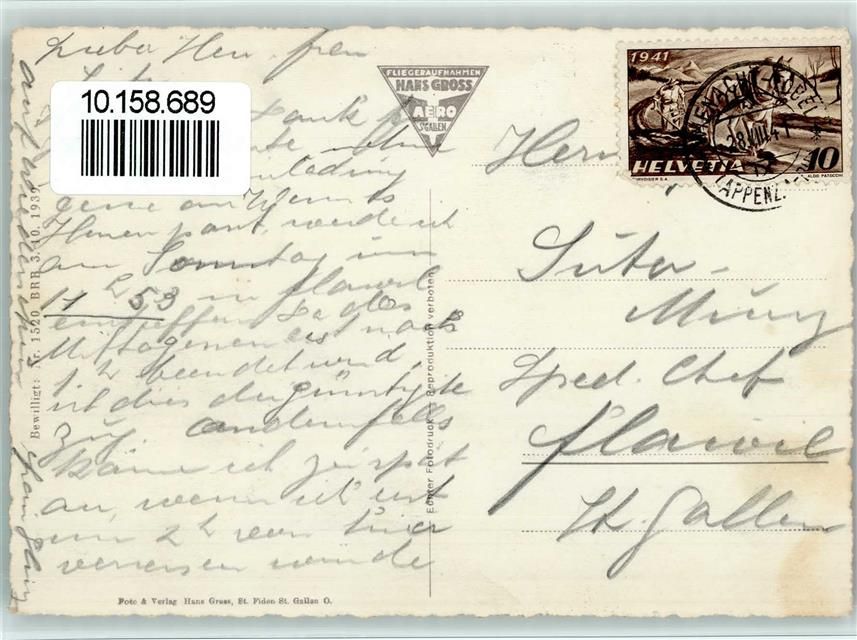 Lieber Herr
10.158.689
Dank f
ohne
Einladung
gerne an. Wenn es
Ihnen passt, werde ich
am Sonntag um
11 h 53 in Flawil
eintreffen. Da das
Mittagessen erst nach
12 h beendet wird,
ist dies der günstigste
Zug. Andernfalls
käme ich zu spät
an, wenn ich erst
um 2 h von hier
verreisen würde
auf Wiedersehen
Bewilligt: Nr. 1520 BRB 3. 10. 1939
Foto & Verlag Hans Gross, St. Fiden-St. Gallen O.
FLIEGERAUFNAHMEN
HANS GROSS
AERO
ST.GALLEN
Echter Fotodruck - Reproduktion verboten
1941
HELVETIA 10
COURVOISIER S.A.
ALDO PATOCCHI
28.VIII.41
APPENZ.
Herrn
Suter-
Spед. Chef
Flawil
St. Gallen